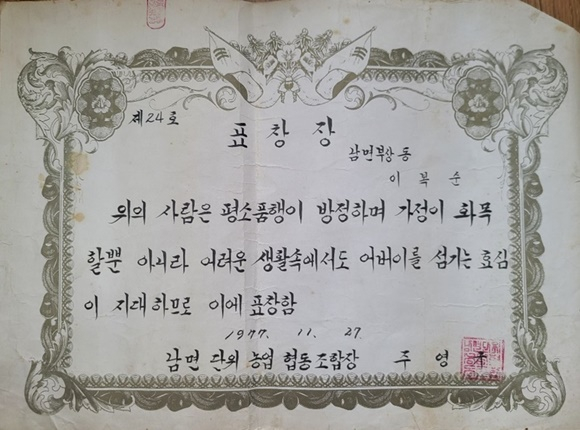 제24호
표창장
남면부상동
이복순
위의 사람은 평소품행이 방정하며 가정이 화목
할뿐 아니라 어려운 생활속에서도 어버이를 섬기는 효심
이 지대하므로 이에 표창함
1977. 11. 27.
남면 단위 농업 협동조합장 주영